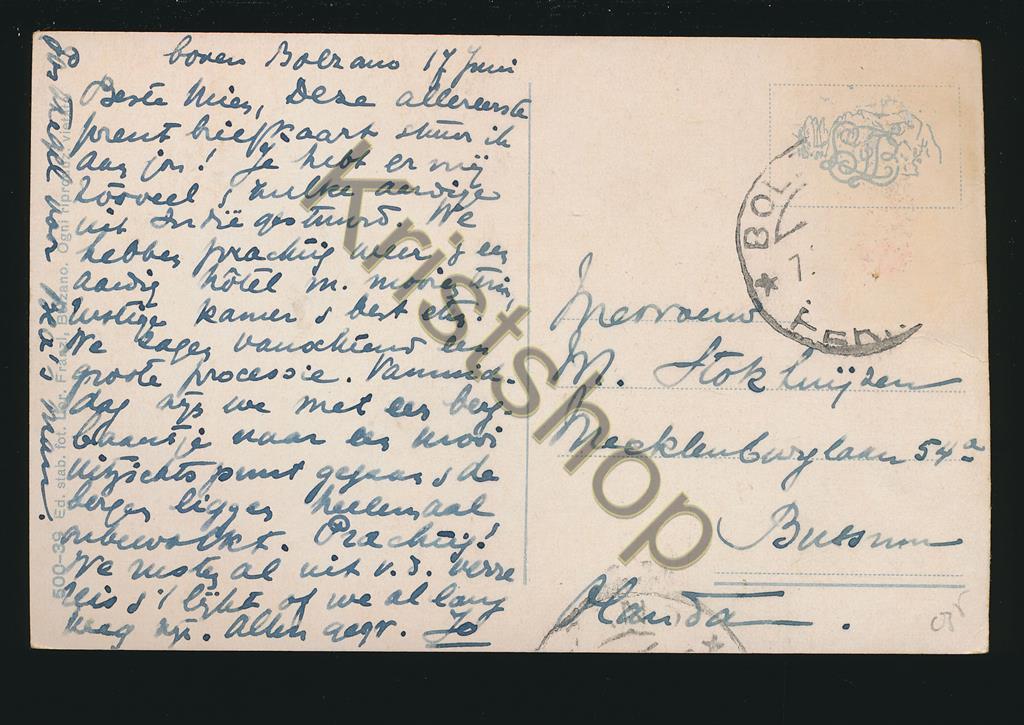 boven Bolzano 17 Juni
Beste Mien, Deze allereerste
prentbriefkaart stuur ik
aan jou! Je hebt er mij
zóóveel & zulke aardige
uit Indië gestuurd. We
hebben prachtig weer & een
aardig hôtel m. mooien tuin,
rustige kamer & best eten.
We zagen vanochtend een
groote processie. Vanmid-
dag zijn we met een berg-
baantje naar een mooi
uitzichtspunt gegaan & de
bergen liggen heelemaal
onbewolkt. Prachtig!
We rusten al uit v.d. verre
reis & 't lijkt of we al lang
weg zijn. Allen gegr. Jo
van
500-39 Ed. stab. fot. Lor. Fränzl, Bolzano. Ogni riprod. vietata
BOL
7.
Mevrouw
M. Stokhuijzen
Mecklenburglaan 54a
Bussum
Holland.
Kristshop